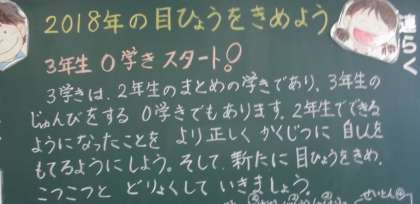 2018年の目ひょうをきめよう
3年生 0学き スタート!
3学きは、2年生のまとめの学きであり、3年生の
じゅんびをする 0学きでもあります。2年生でできる
ようになったことを より正しく かくじつに 自しんを
もてるようにしよう。そして、新たに 目ひょうをきめ、
こつこつと どりょくして いきましょう。